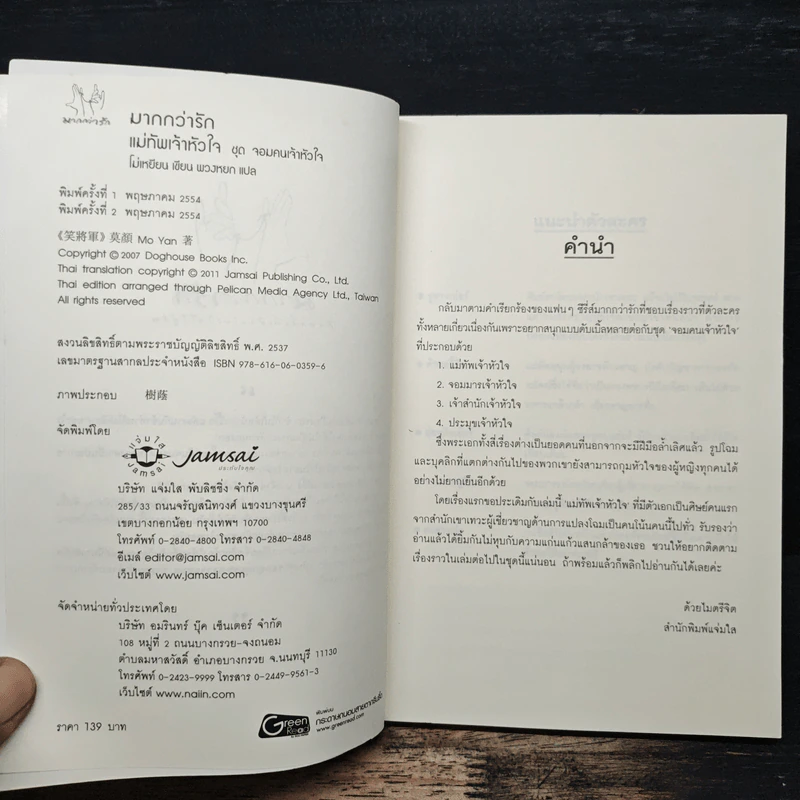 มากกว่ารัก
มากกว่ารัก
แม่ทัพเจ้าหัวใจ ชุด จอมคนเจ้าหัวใจ
โม่เหยียน เขียน พวงหยก แปล
พิมพ์ครั้งที่ 1 พฤษภาคม 2554
พิมพ์ครั้งที่ 2 พฤษภาคม 2554
《笑將軍》莫顏 Mo Yan 著
Copyright © 2007 Doghouse Books Inc.
Thai translation copyright © 2011 Jamsai Publishing Co., Ltd.
Thai edition arranged through Pelican Media Agency Ltd., Taiwan
All rights reserved
สงวนลิขสิทธิ์ตามพระราชบัญญัติลิขสิทธิ์ พ.ศ. 2537
เลขมาตรฐานสากลประจำหนังสือ ISBN 978-616-06-0359-6
ภาพประกอบ 樹蔭
จัดพิมพ์โดย
แจ่มใส
JAMSAI
Jamsai
บริษัท แจ่มใส พับลิชชิ่ง จำกัด
285/33 ถนนจรัญสนิทวงศ์ แขวงบางขุนศรี
เขตบางกอกน้อย กรุงเทพฯ 10700
โทรศัพท์ 0-2840-4800 โทรสาร 0-2840-4848
อีเมล์ editor@jamsai.com
เว็บไซต์ www.jamsai.com
จัดจำหน่ายทั่วประเทศโดย
บริษัท อมรินทร์ บุ๊ค เซ็นเตอร์ จำกัด
108 หมู่ที่ 2 ถนนบางกรวย-จงถนอม
ตำบลมหาสวัสดิ์ อำเภอบางกรวย จ.นนทบุรี 11130
โทรศัพท์ 0-2423-9999 โทรสาร 0-2449-9561-3
เว็บไซต์ www.naiin.com
ราคา 139 บาท
Green Read
พิมพ์บน
กระดาษถนอมสายตากรีนรี้ด
www.greenread.com
คำนำ
กลับมาตามคำเรียกร้องของแฟนๆ ซีรี่ส์มากกว่ารักที่ชอบเรื่องราวที่ตัวละคร
ทั้งหลายเกี่ยวเนื่องกันเพราะอยากสนุกแบบดับเบิ้ลหลายต่อกับชุด 'จอมคนเจ้าหัวใจ'
ที่ประกอบด้วย
1. แม่ทัพเจ้าหัวใจ
2. จอมมารเจ้าหัวใจ
3. เจ้าสำนักเจ้าหัวใจ
4. ประมุขเจ้าหัวใจ
ซึ่งพระเอกทั้งสี่เรื่องต่างเป็นยอดคนที่นอกจากจะมีฝีมือล้ำเลิศแล้ว รูปโฉม
และบุคลิกที่แตกต่างกันไปของพวกเขายังสามารถกุมหัวใจของผู้หญิงทุกคนได้
อย่างไม่ยากเย็นอีกด้วย
โดยเรื่องแรกขอประเดิมกับเล่มนี้ 'แม่ทัพเจ้าหัวใจ' ที่มีตัวเอกเป็นศิษย์คนแรก
จากสำนักเขาเทวะผู้เชี่ยวชาญด้านการแปลงโฉมเป็นคนโน้นคนนี้ไปทั่ว รับรองว่า
อ่านแล้วได้ยิ้มกันไม่หุบกับความแก่นแก้วแสนกล้าของเธอ ชวนให้อยากติดตาม
เรื่องราวในเล่มต่อไปในชุดนี้แน่นอน ถ้าพร้อมแล้วก็พลิกไปอ่านกันได้เลยค่ะ
ด้วยไมตรีจิต
สำนักพิมพ์แจ่มใส